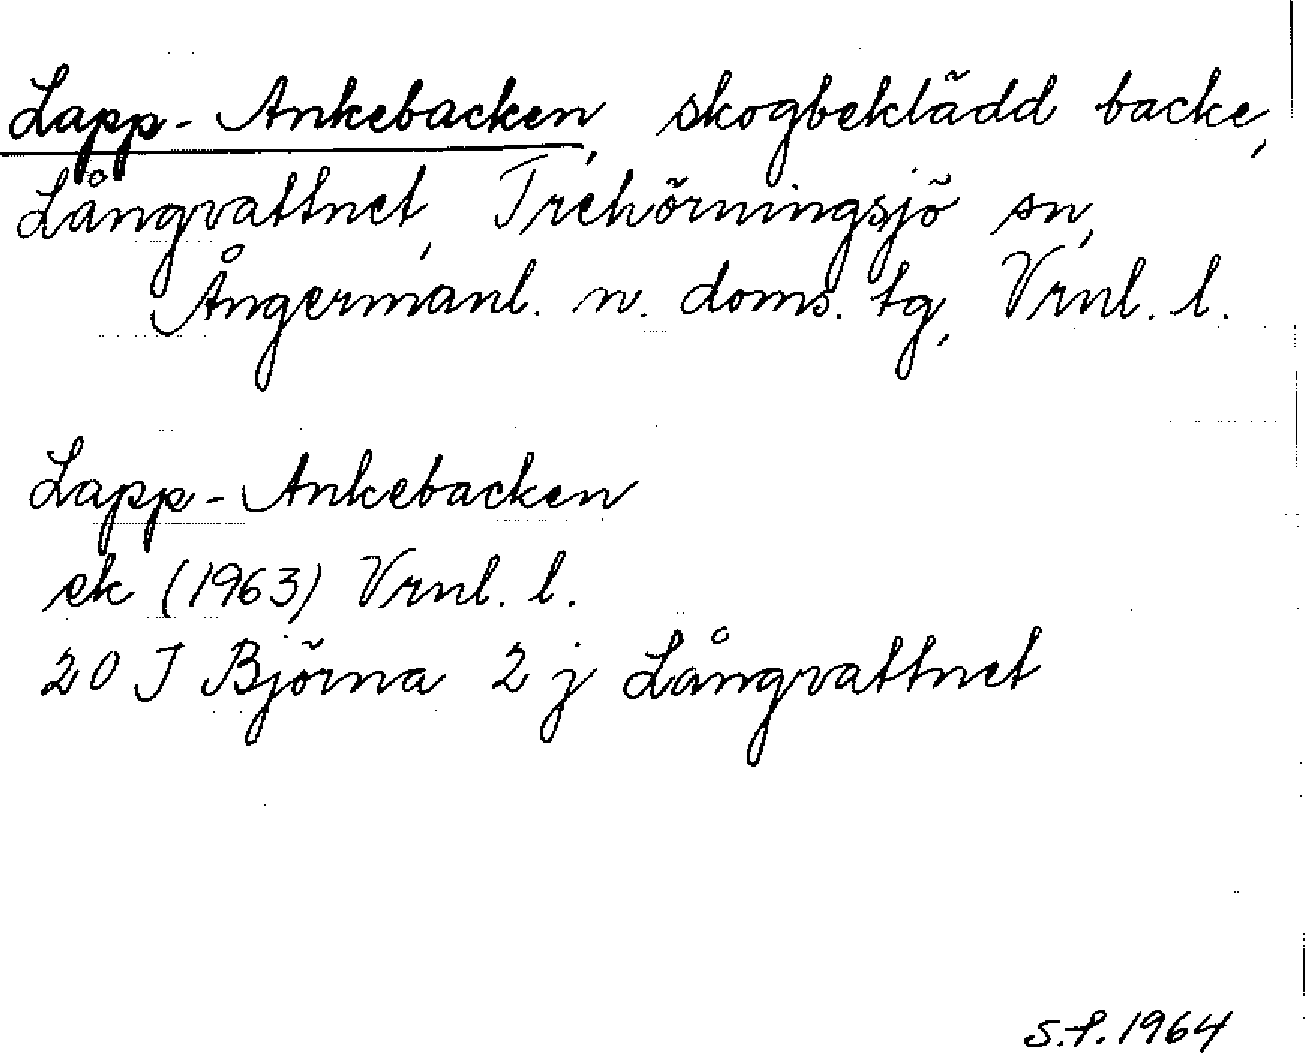 Lapp-Ankebacken, skogbeklädd backe,
Långvattnet, Trehörningsjö sn,
Ångermanl. n. doms. tg, Vrnl. l.
Lapp-Ankebacken
ek (1963) Vrnl. l.
20 J Björna 2 j Långvattnet
S.f. 1964